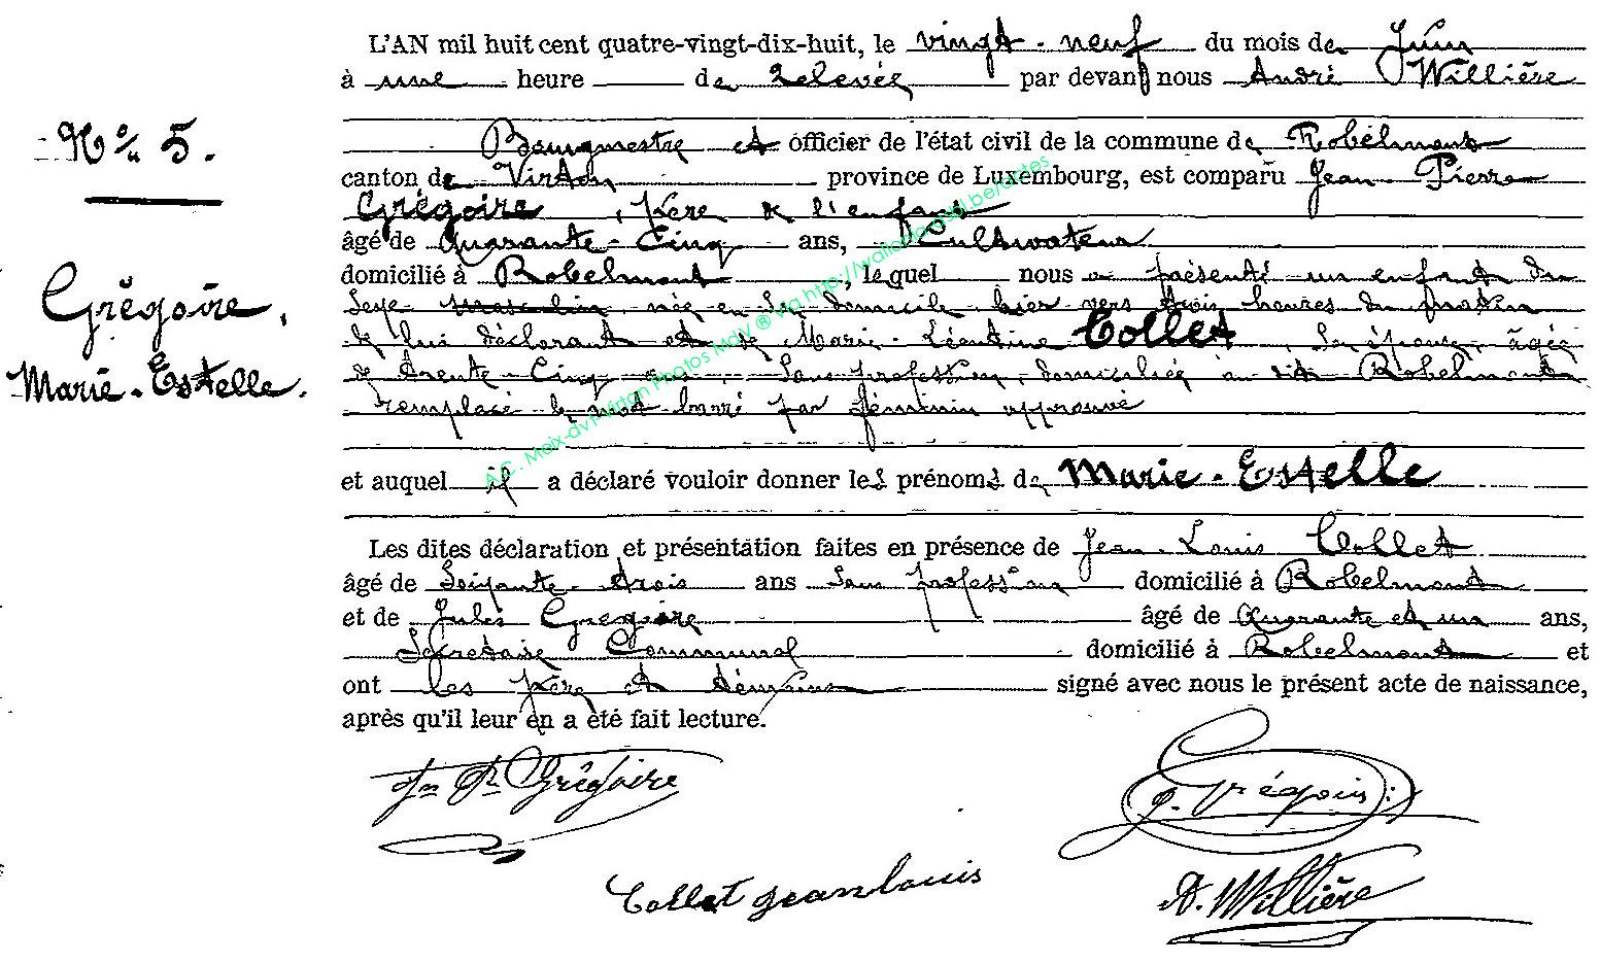 L'AN mil huit cent quatre-vingt-dix-huit, le vingt-neuf du mois de Juin
à une heure de relevée par devant nous André Willière
N° 5.
Bourgmestre et officier de l'état civil de la commune de Robelmont
canton de Virton province de Luxembourg, est comparu Jean-Pierre
Grégoire, père de l'enfant
âgé de Quarante-Cinq ans, Cultivateur
domicilié à Robelmont, lequel nous a présenté un enfant du
Sexe masculin née en son domicile hier vers trois heures du matin
de lui déclarant et de Marie-Léontine Collet, Son épouse, âgée
de trente-Cinq ans, Sans profession, domiciliée au dit Robelmont
remplacé le mot barré par féminin approuvé
Grégoire,
Marie-Estelle.
et auquel il a déclaré vouloir donner les prénoms de Marie-Estelle
Les dites déclaration et présentation faites en présence de Jean-Louis Collet
âgé de Soixante-trois ans Sans profession domicilié à Robelmont
et de Jules Grégoire âgé de Quarante et un ans,
Secrétaire Communal domicilié à Robelmont et
ont les père et témoins signé avec nous le présent acte de naissance,
après qu'il leur en a été fait lecture.
Jn Pre Grégoire
J. Grégoire
Collet jean louis
A. Willière
A.C. Meix-dvt-Virton Photos MdV ® via http://walloniaasbl.be/actes